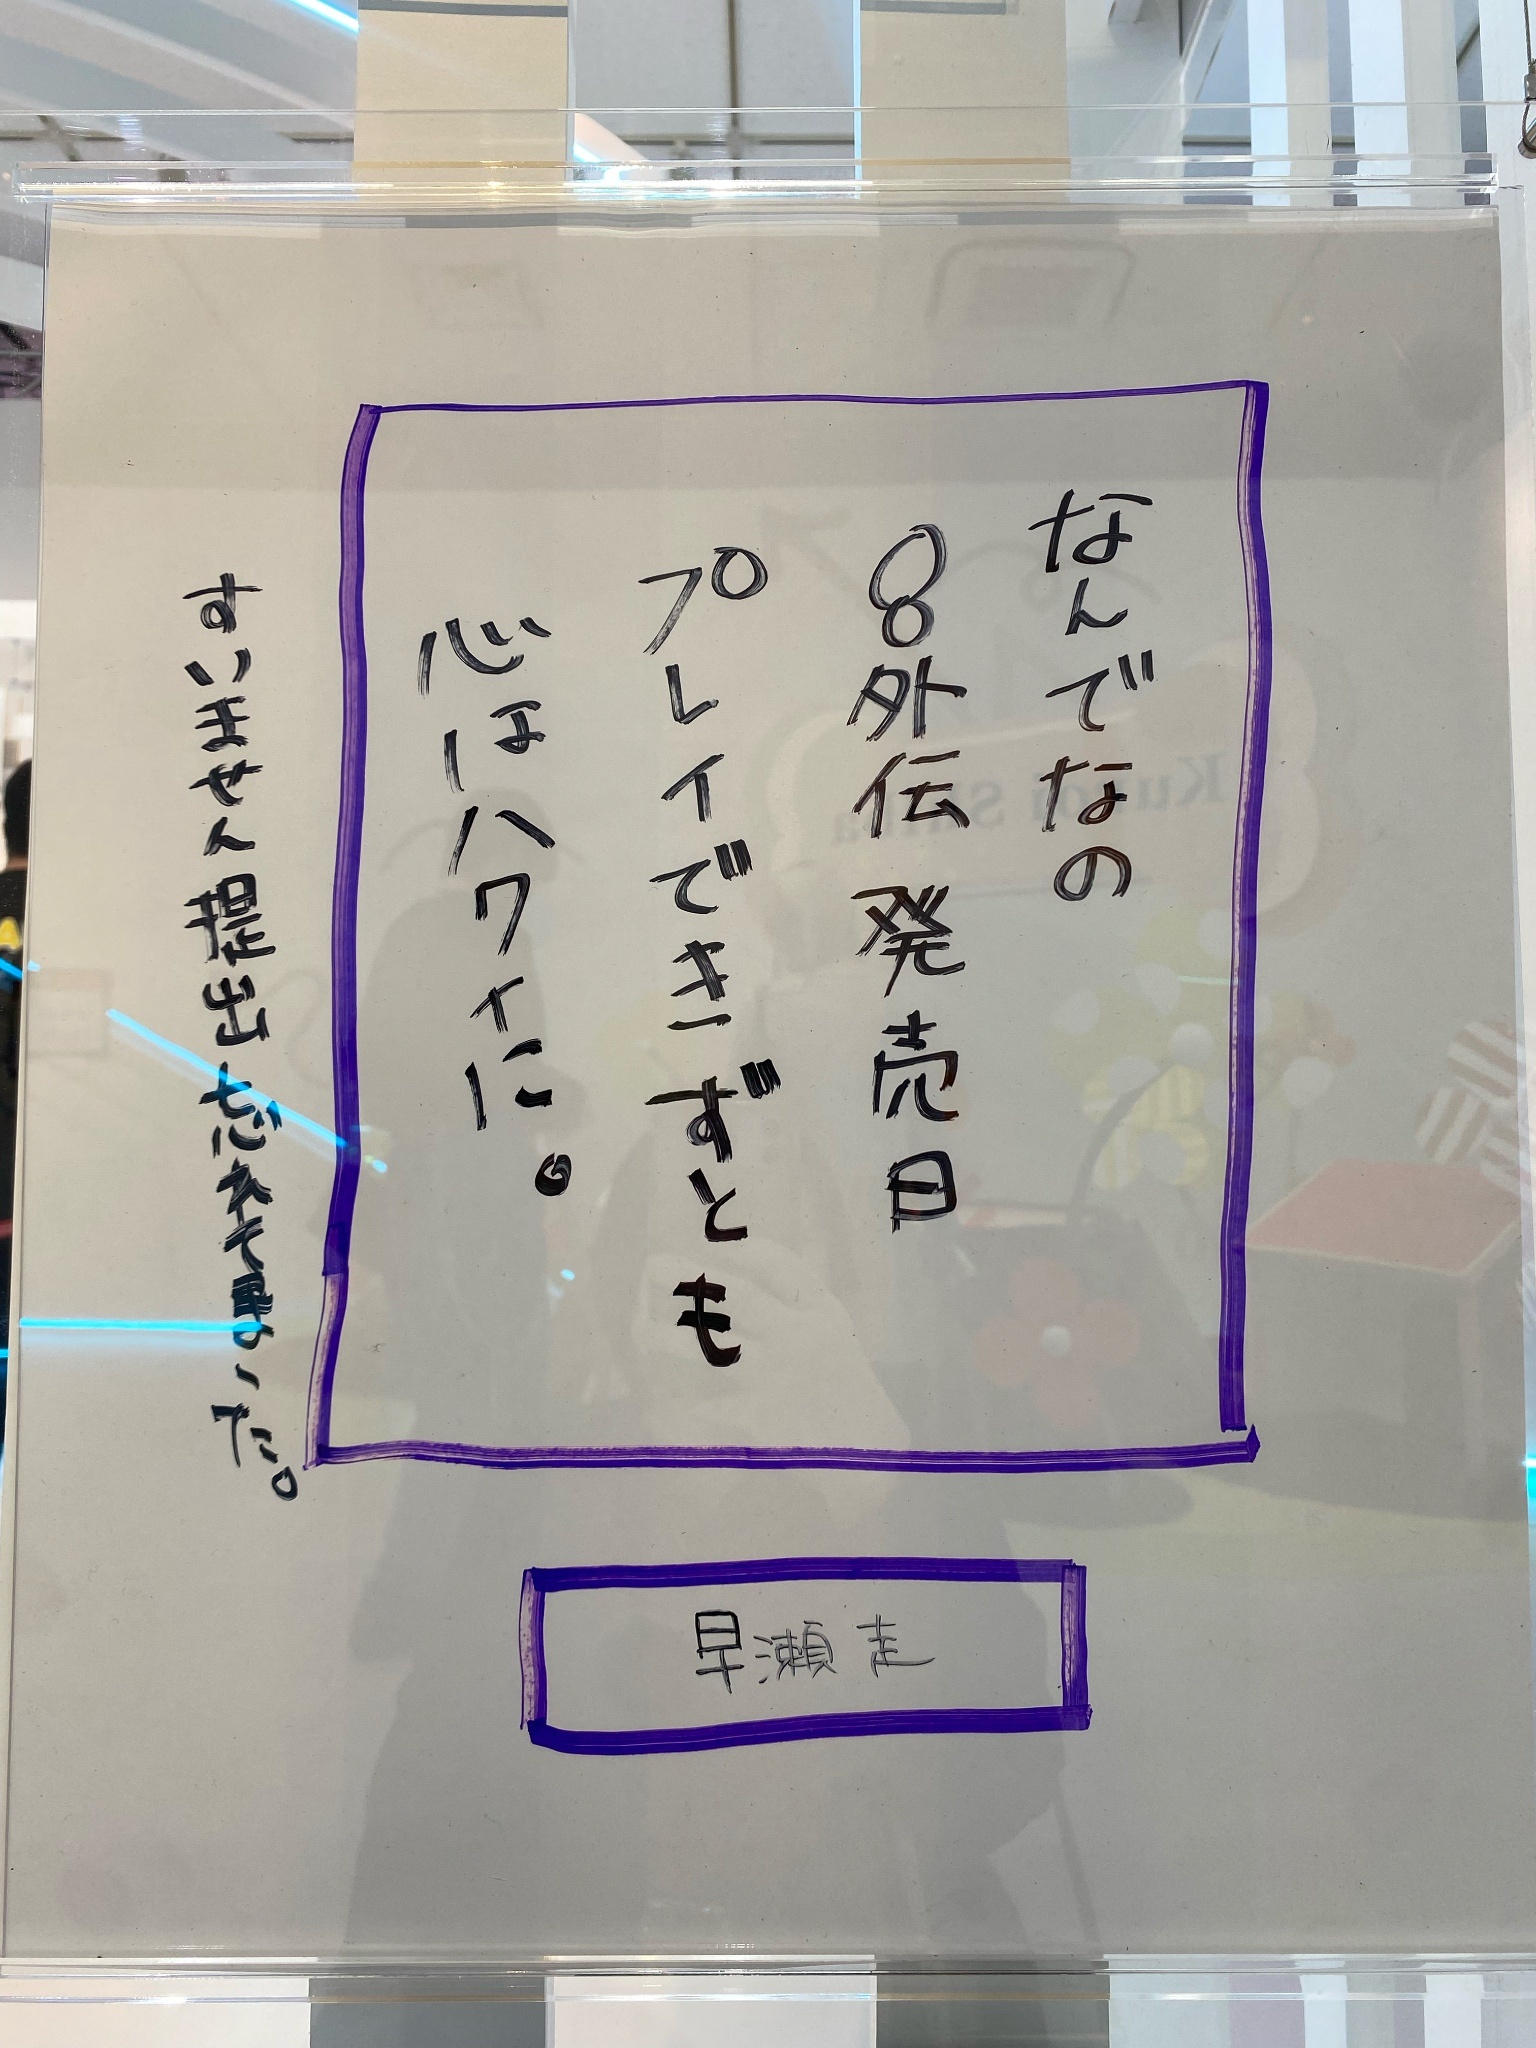 なんでなの
8外伝 発売日
プレイできずとも
心はハワイに。
すいません提出忘れてまった。
早瀬 走